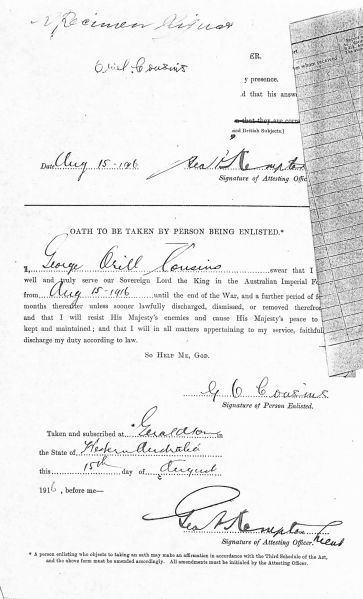 Specimen
Orill Cousins
ER.
y presence.
d that his answ
that they are corre
and British Subjects.]
Date Aug 15-1916 Geo H Kempton
Signature of Attesting Offi
OATH TO BE TAKEN BY PERSON BEING ENLISTED.*
I, George Orill Cousins swear that I
well and truly serve our Sovereign Lord the King in the Australian Imperial Fo
from Aug 15-1916 until the end of the War, and a further period of fo
months thereafter unless sooner lawfully discharged, dismissed, or removed therefrom
and that I will resist His Majesty's enemies and cause His Majesty's peace to
kept and maintained; and that I will in all matters appertaining to my service, faithful
discharge my duty according to law.
So Help Me, God.
G O Cousins
Signature of Person Enlisted.
Taken and subscribed at Geraldton in
the State of Western Australia
this 15th day of August
1916, before me—
Geo H Kempton Lieut
Signature of Attesting Officer.
* A person enlisting who objects to taking an oath may make an affirmation in accordance with the Third Schedule of the Act,
and the above form must be amended accordingly. All amendments must be initialed by the Attesting Officer.